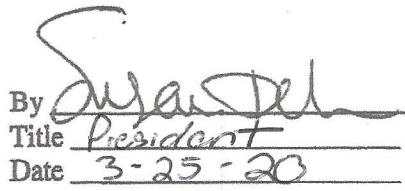 By Susan
Title President
Date 3-25-20